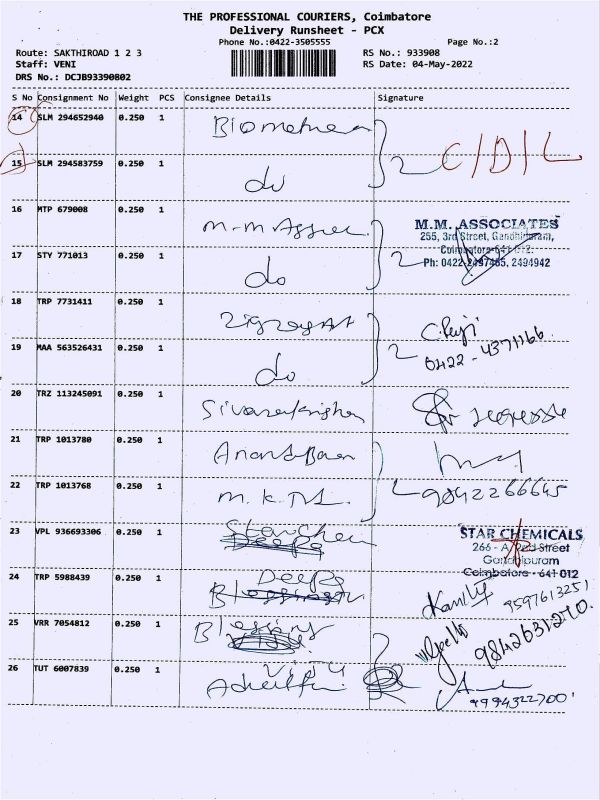 THE PROFESSIONAL COURIERS, Coimbatore
Delivery Runsheet - PCX
Phone No.:0422-3505555 Page No.:2
Route: SAKTHIROAD 1 2 3 RS No.: 933908
Staff: VENI RS Date: 04-May-2022
DRS No.: DCJB93390802
S No Consignment No Weight PCS Consignee Details Signature
14 SLM 294652940 0.250 1
C/D/L
15 SLM 294583759 0.250 1 do
16 MTP 679008 0.250 1 M.M. ASSOCIATES
255, 3rd Street, Gandhipuram,
Coimbatore-641 012.
17 STY 771013 0.250 1 do Ph: 0422-2497465, 2494942
18 TRP 7731411 0.250 1
0422-4371166
19 MAA 563526431 0.250 1 do
20 TRZ 113245091 0.250 1
21 TRP 1013780 0.250 1 Anand
22 TRP 1013768 0.250 1 9842266645
23 VPL 936693306 0.250 1 STAR CHEMICALS
266 - A, Street
Gandhipuram
Coimbatore - 641 012
24 TRP 5988439 0.250 1 Deepa
9597613251
25 VRR 7054812 0.250 1 Blessings 9842631270
26 TUT 6007839 0.250 1
9994322700